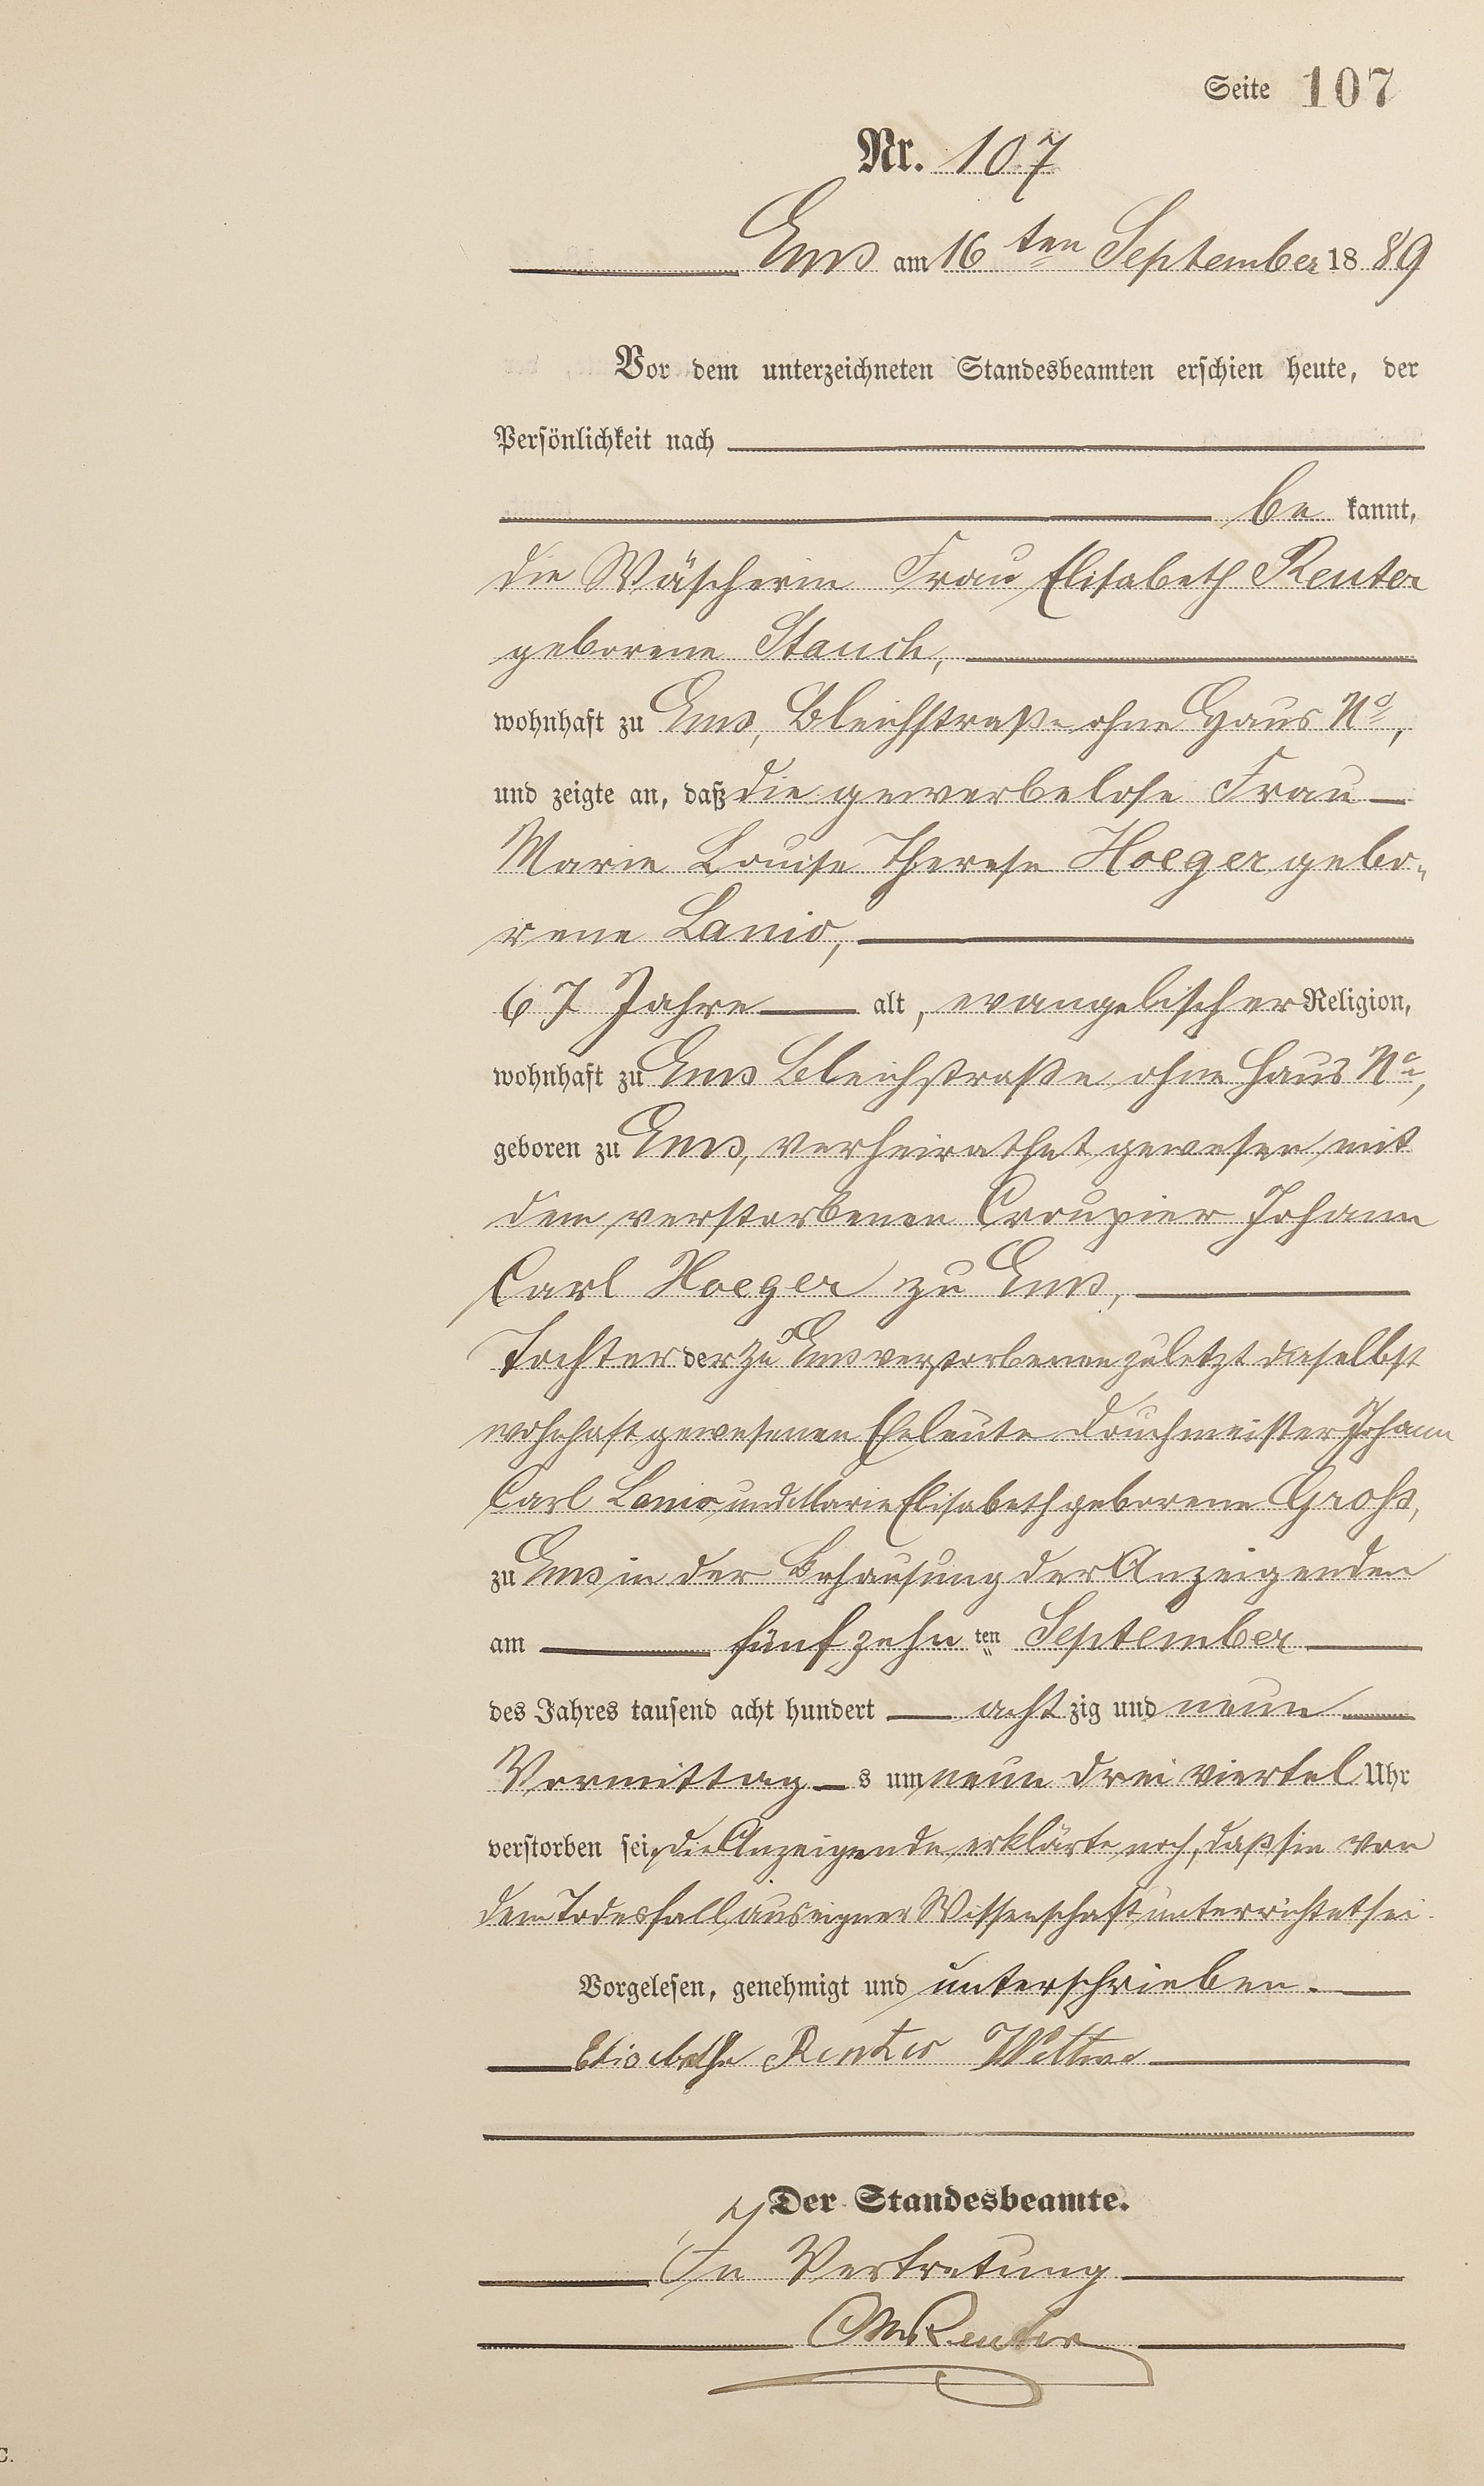 Seite 107
Nr. 107
Ems am 16ten September 1889
Vor dem unterzeichneten Standesbeamten erschien heute, der
Persönlichkeit nach
be kannt,
die Wäscherin Frau Elisabeth Reuter
geborene Stauch,
wohnhaft zu Ems, Bleichstraße ohne Haus No,
und zeigte an, daß die gewerbelose Frau
Marie Louise Therese Hoeger gebo-
rene Lanio,
67 Jahre alt, evangelischer Religion,
wohnhaft zu Ems Bleichstraße ohne Haus No,
geboren zu Ems, verheirathet gewesen mit
dem verstorbenen Croupier Johann
Carl Hoeger zu Ems,
Tochter der zu Ems verstorbenen zuletzt daselbst
wohnhaft gewesenen Eheleute Douchmeister Johann
Carl Lanio und Marie Elisabeth geborene Groß,
zu Ems in der Behausung der Anzeigenden
am fünfzehnten September
des Jahres tausend acht hundert acht zig und neun
Vormittag s um neun drei viertel Uhr
verstorben sei, die Anzeigende erklärte noch, daß sie von
dem Todesfall aus eigner Wissenschaft unterrichtet sei.
Vorgelesen, genehmigt und unterschrieben.
Elisabethe Reuter Wittwe
Der Standesbeamte.
In Vertretung
Reuter
C.